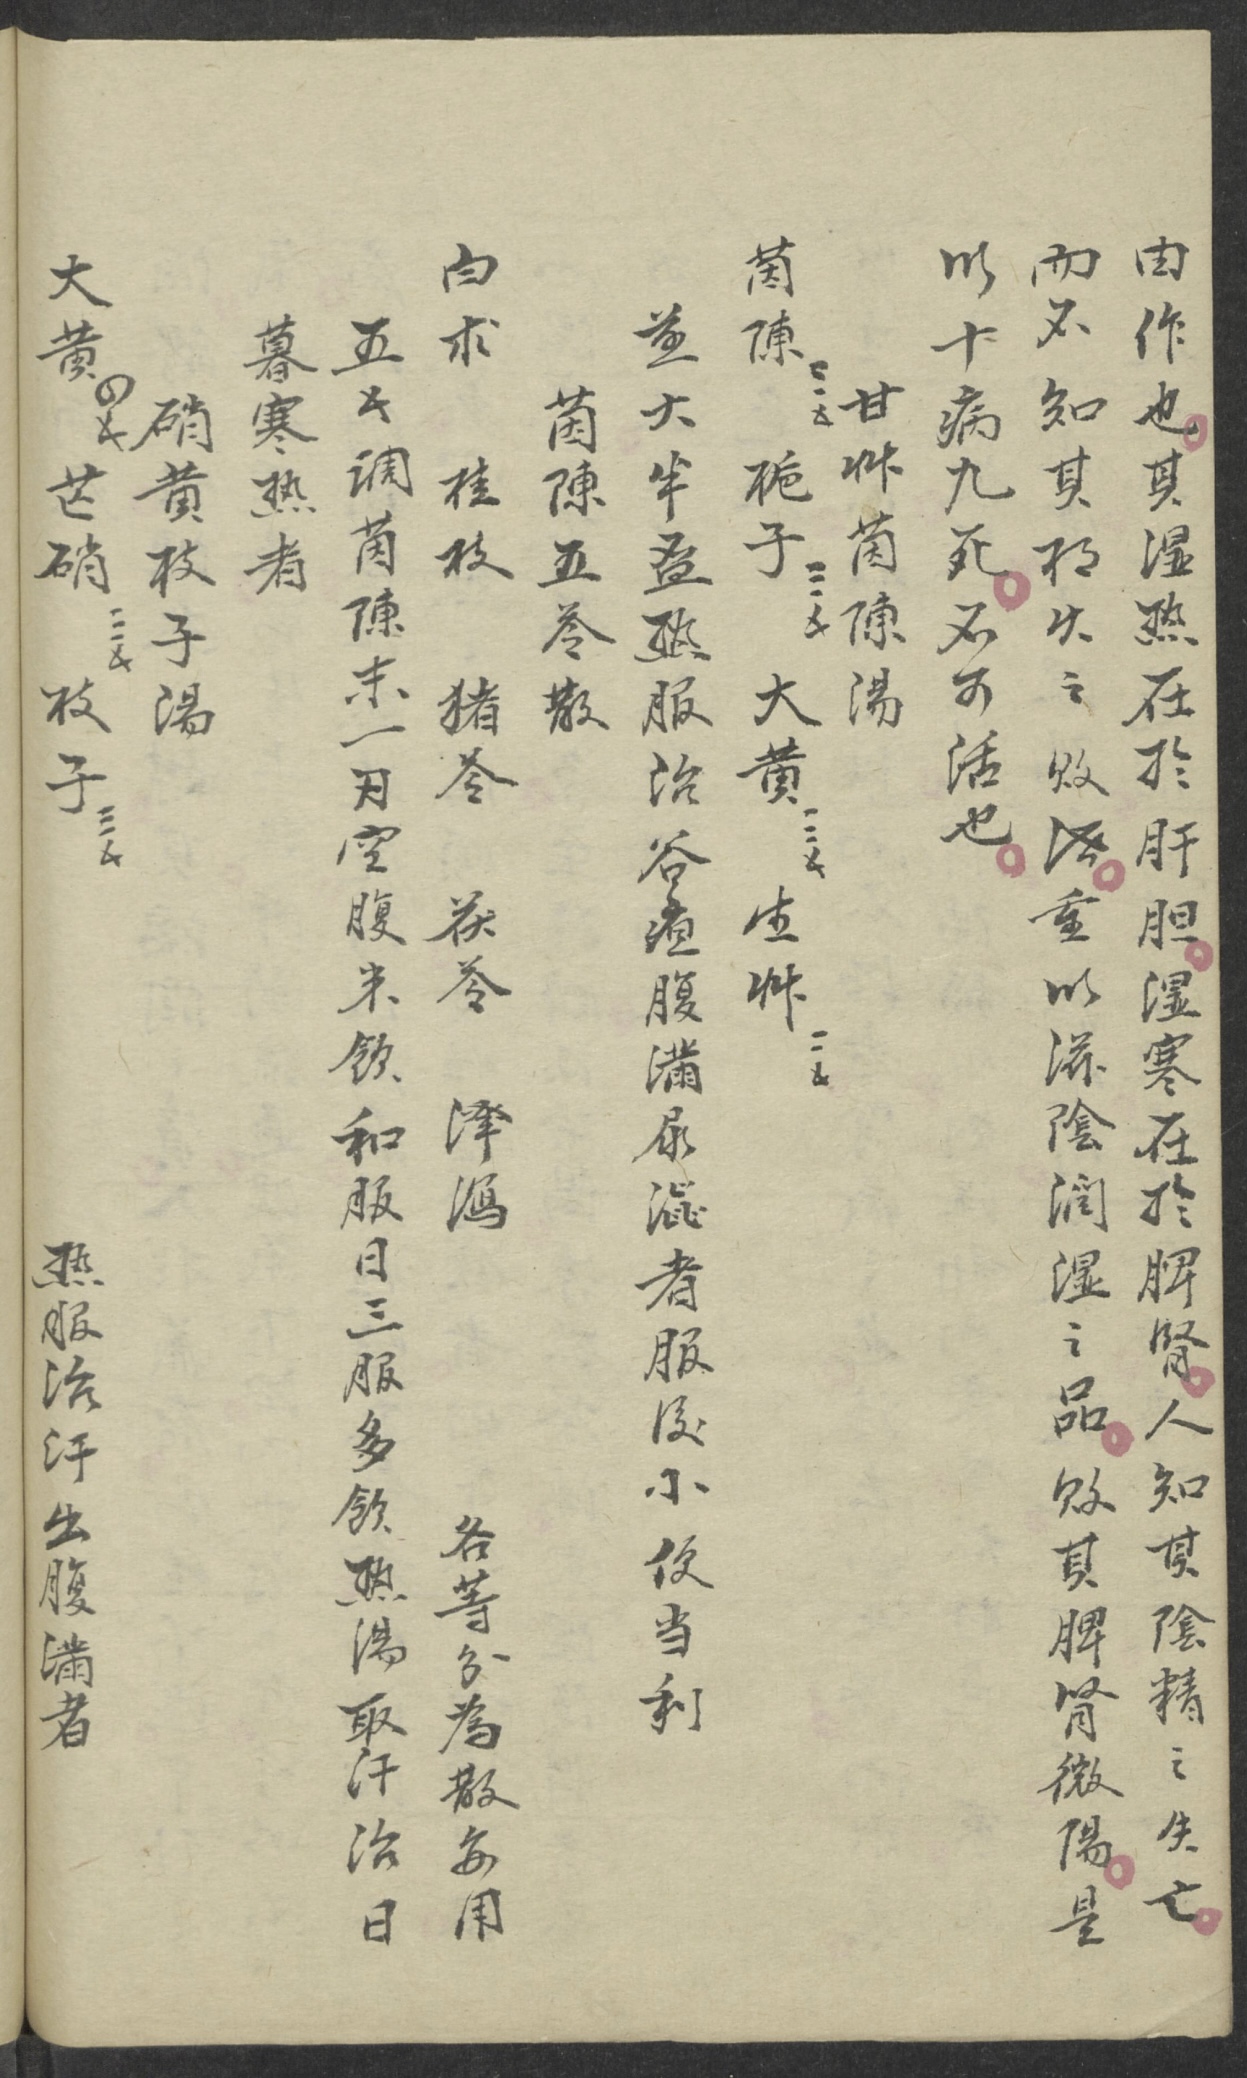 由作也其湿热在於肝胆湿寒在於脾腎人知其陰精之失亡
而不知其相火之敗 重以滋陰潤湿之品敗其脾腎微陽是
以十病九死不可活也
甘艸茵陳湯
茵陳三二钱 梔子三二钱 大黄二三钱 生艸二二钱
並大半盃熱服治谷疸腹滿尿澁者服後小便当利
茵陳五苓散
白朮 桂枝 猪苓 茯苓 澤瀉 各等分為散每用
五钱調茵陳末一刃空腹米飲和服日三服多飲熱湯取汗治日
暮寒热者
硝黄枝子湯
大黄四钱 芒硝三钱 枝子三二钱 热服治汗出腹滿者